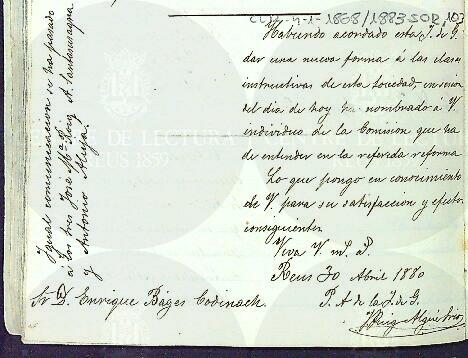 1868/1883
Habiendo acordado esta J. de G.
dar una nueva forma á las clases
instructivas de esta Sociedad, en sesion
del dia de hoy ha nombrado á V.
individuo de la Comision que ha
de entender en la referida reforma
Lo que pongo en conocimiento
de V. para su satisfaccion y efectos
consiguientes.
Viva V. ms. As.
Reus 30 Abril 1880
P. A. de la J. de G.
Sr. D. Enrique Báges Codinach.
Igual comunicacion se ha pasado
á los Sres José Mª
y Antonio
CENTRE DE LECTURA
REUS 1859